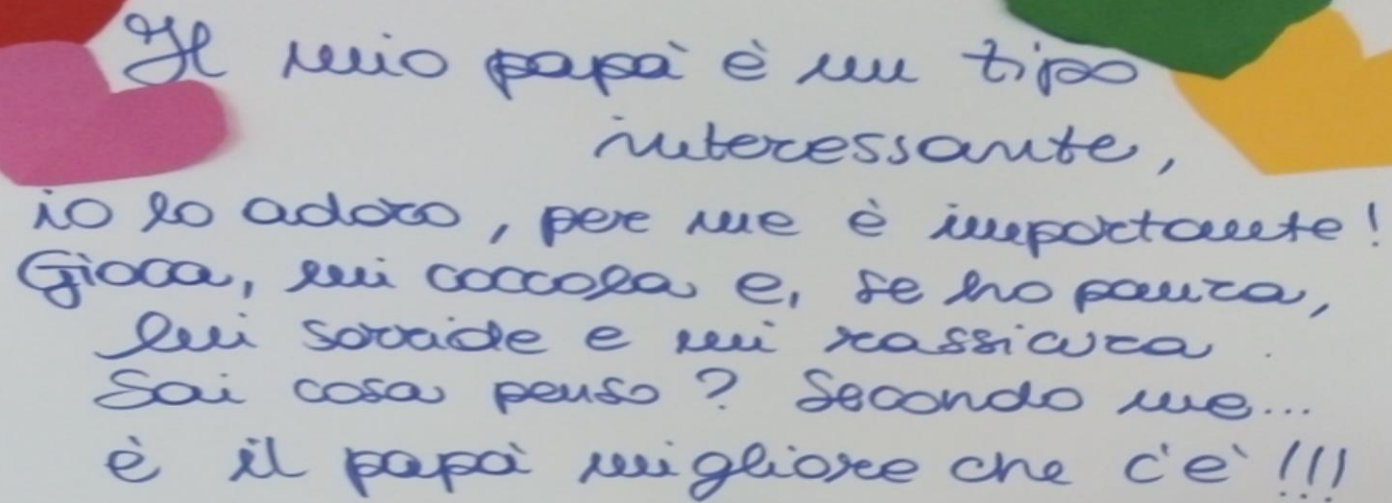 Il mio papà è un tipo
interessante,
io lo adoro, per me è importante!
Gioca, mi coccola e, se ho paura,
lui sorride e mi rassicura.
Sai cosa penso? Secondo me...
è il papà migliore che c'è!!!